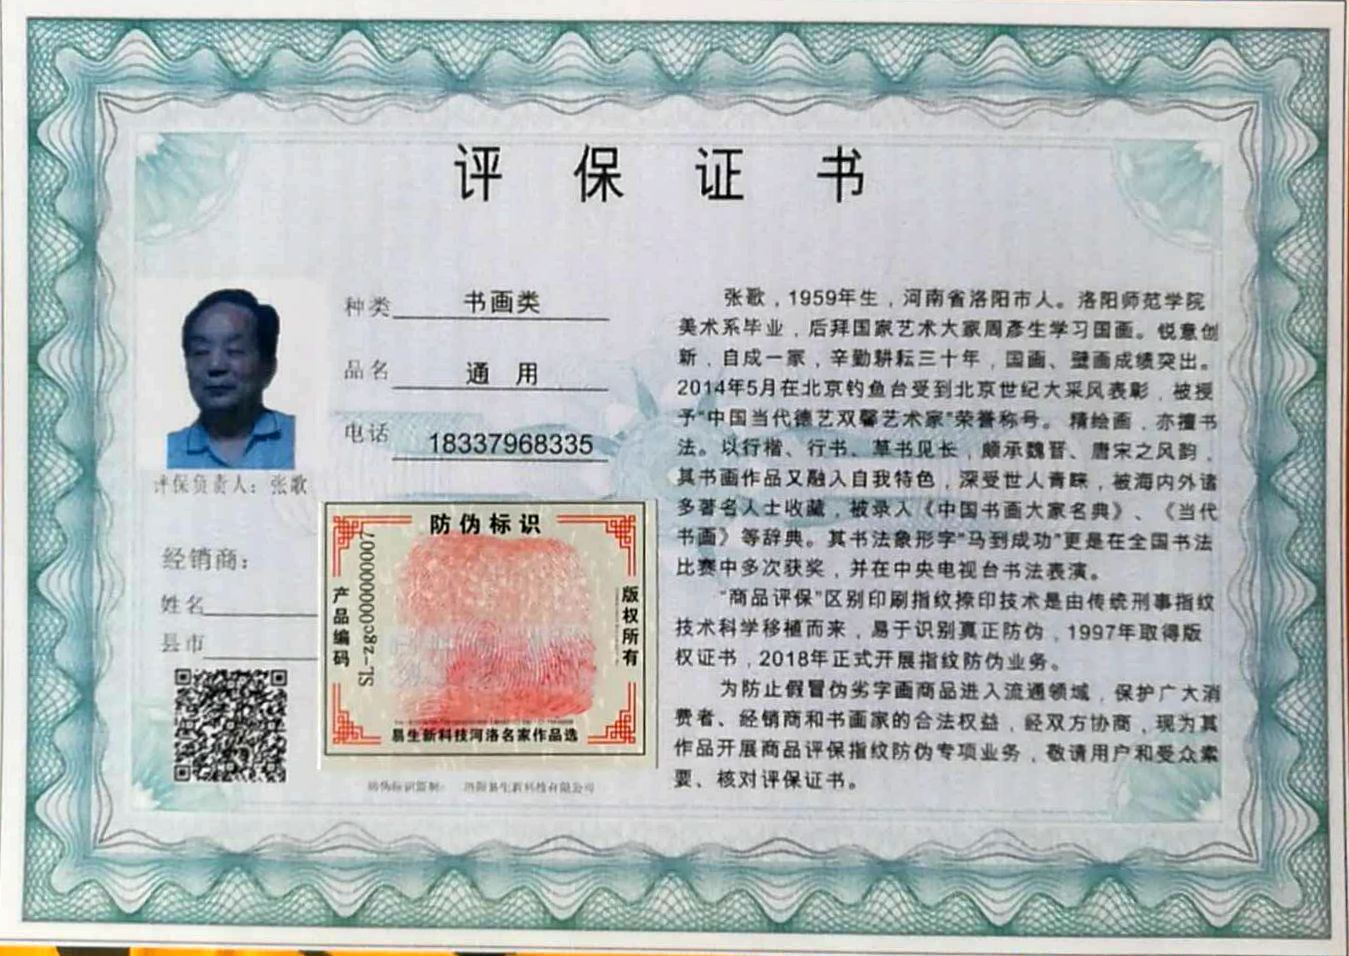 评保证书
种类 书画类
品名 通 用
电话 18337968335
评保负责人：张歌
经销商：
姓名
县市
防伪标识
产品编码
SL-zgc00000000007
版权所有
易生新科技河洛名家作品选
防伪标识监制： 洛阳易生新科技有限公司
张歌，1959年生，河南省洛阳市人。洛阳师范学院
美术系毕业，后拜国家艺术大家周彦生学习国画。锐意创
新，自成一家，辛勤耕耘三十年，国画、壁画成绩突出。
2014年5月在北京钓鱼台受到北京世纪大采风表彰，被授
予“中国当代德艺双馨艺术家”荣誉称号。精绘画，亦擅书
法。以行楷、行书、草书见长，颇承魏晋、唐宋之风韵，
其书画作品又融入自我特色，深受世人青睐，被海内外诸
多著名人士收藏，被录入《中国书画大家名典》、《当代
书画》等辞典。其书法象形字“马到成功”更是在全国书法
比赛中多次获奖，并在中央电视台书法表演。
“商品评保”区别印刷指纹捺印技术是由传统刑事指纹
技术科学移植而来，易于识别真正防伪，1997年取得版
权证书，2018年正式开展指纹防伪业务。
为防止假冒伪劣字画商品进入流通领域，保护广大消
费者、经销商和书画家的合法权益，经双方协商，现为其
作品开展商品评保指纹防伪专项业务，敬请用户和受众索
要、核对评保证书。